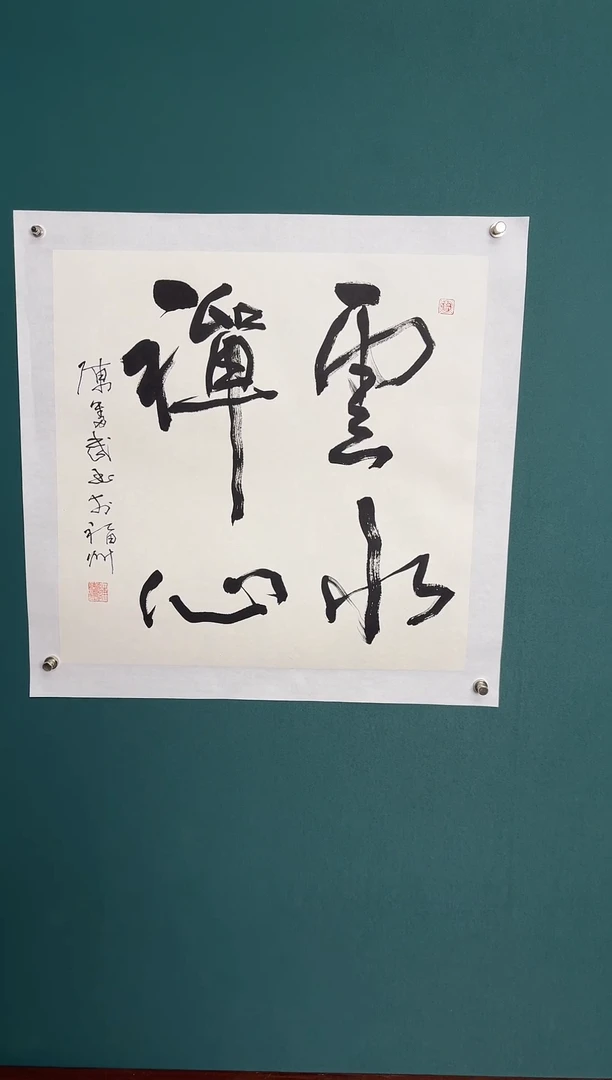 雲水
禪心
陳秀武書於福州